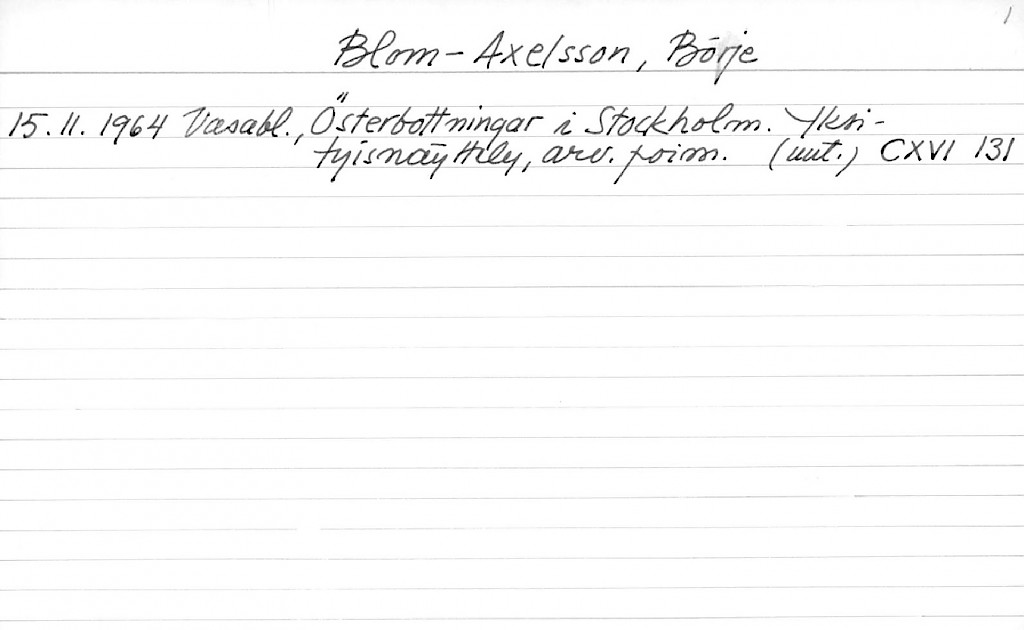 1
Blom-Axelsson, Börje
15.11.1964 Vasabl., Österbottningar i Stockholm. Yksi-
tyisnäyttely, arv. poim. (uut.) CXVI 131